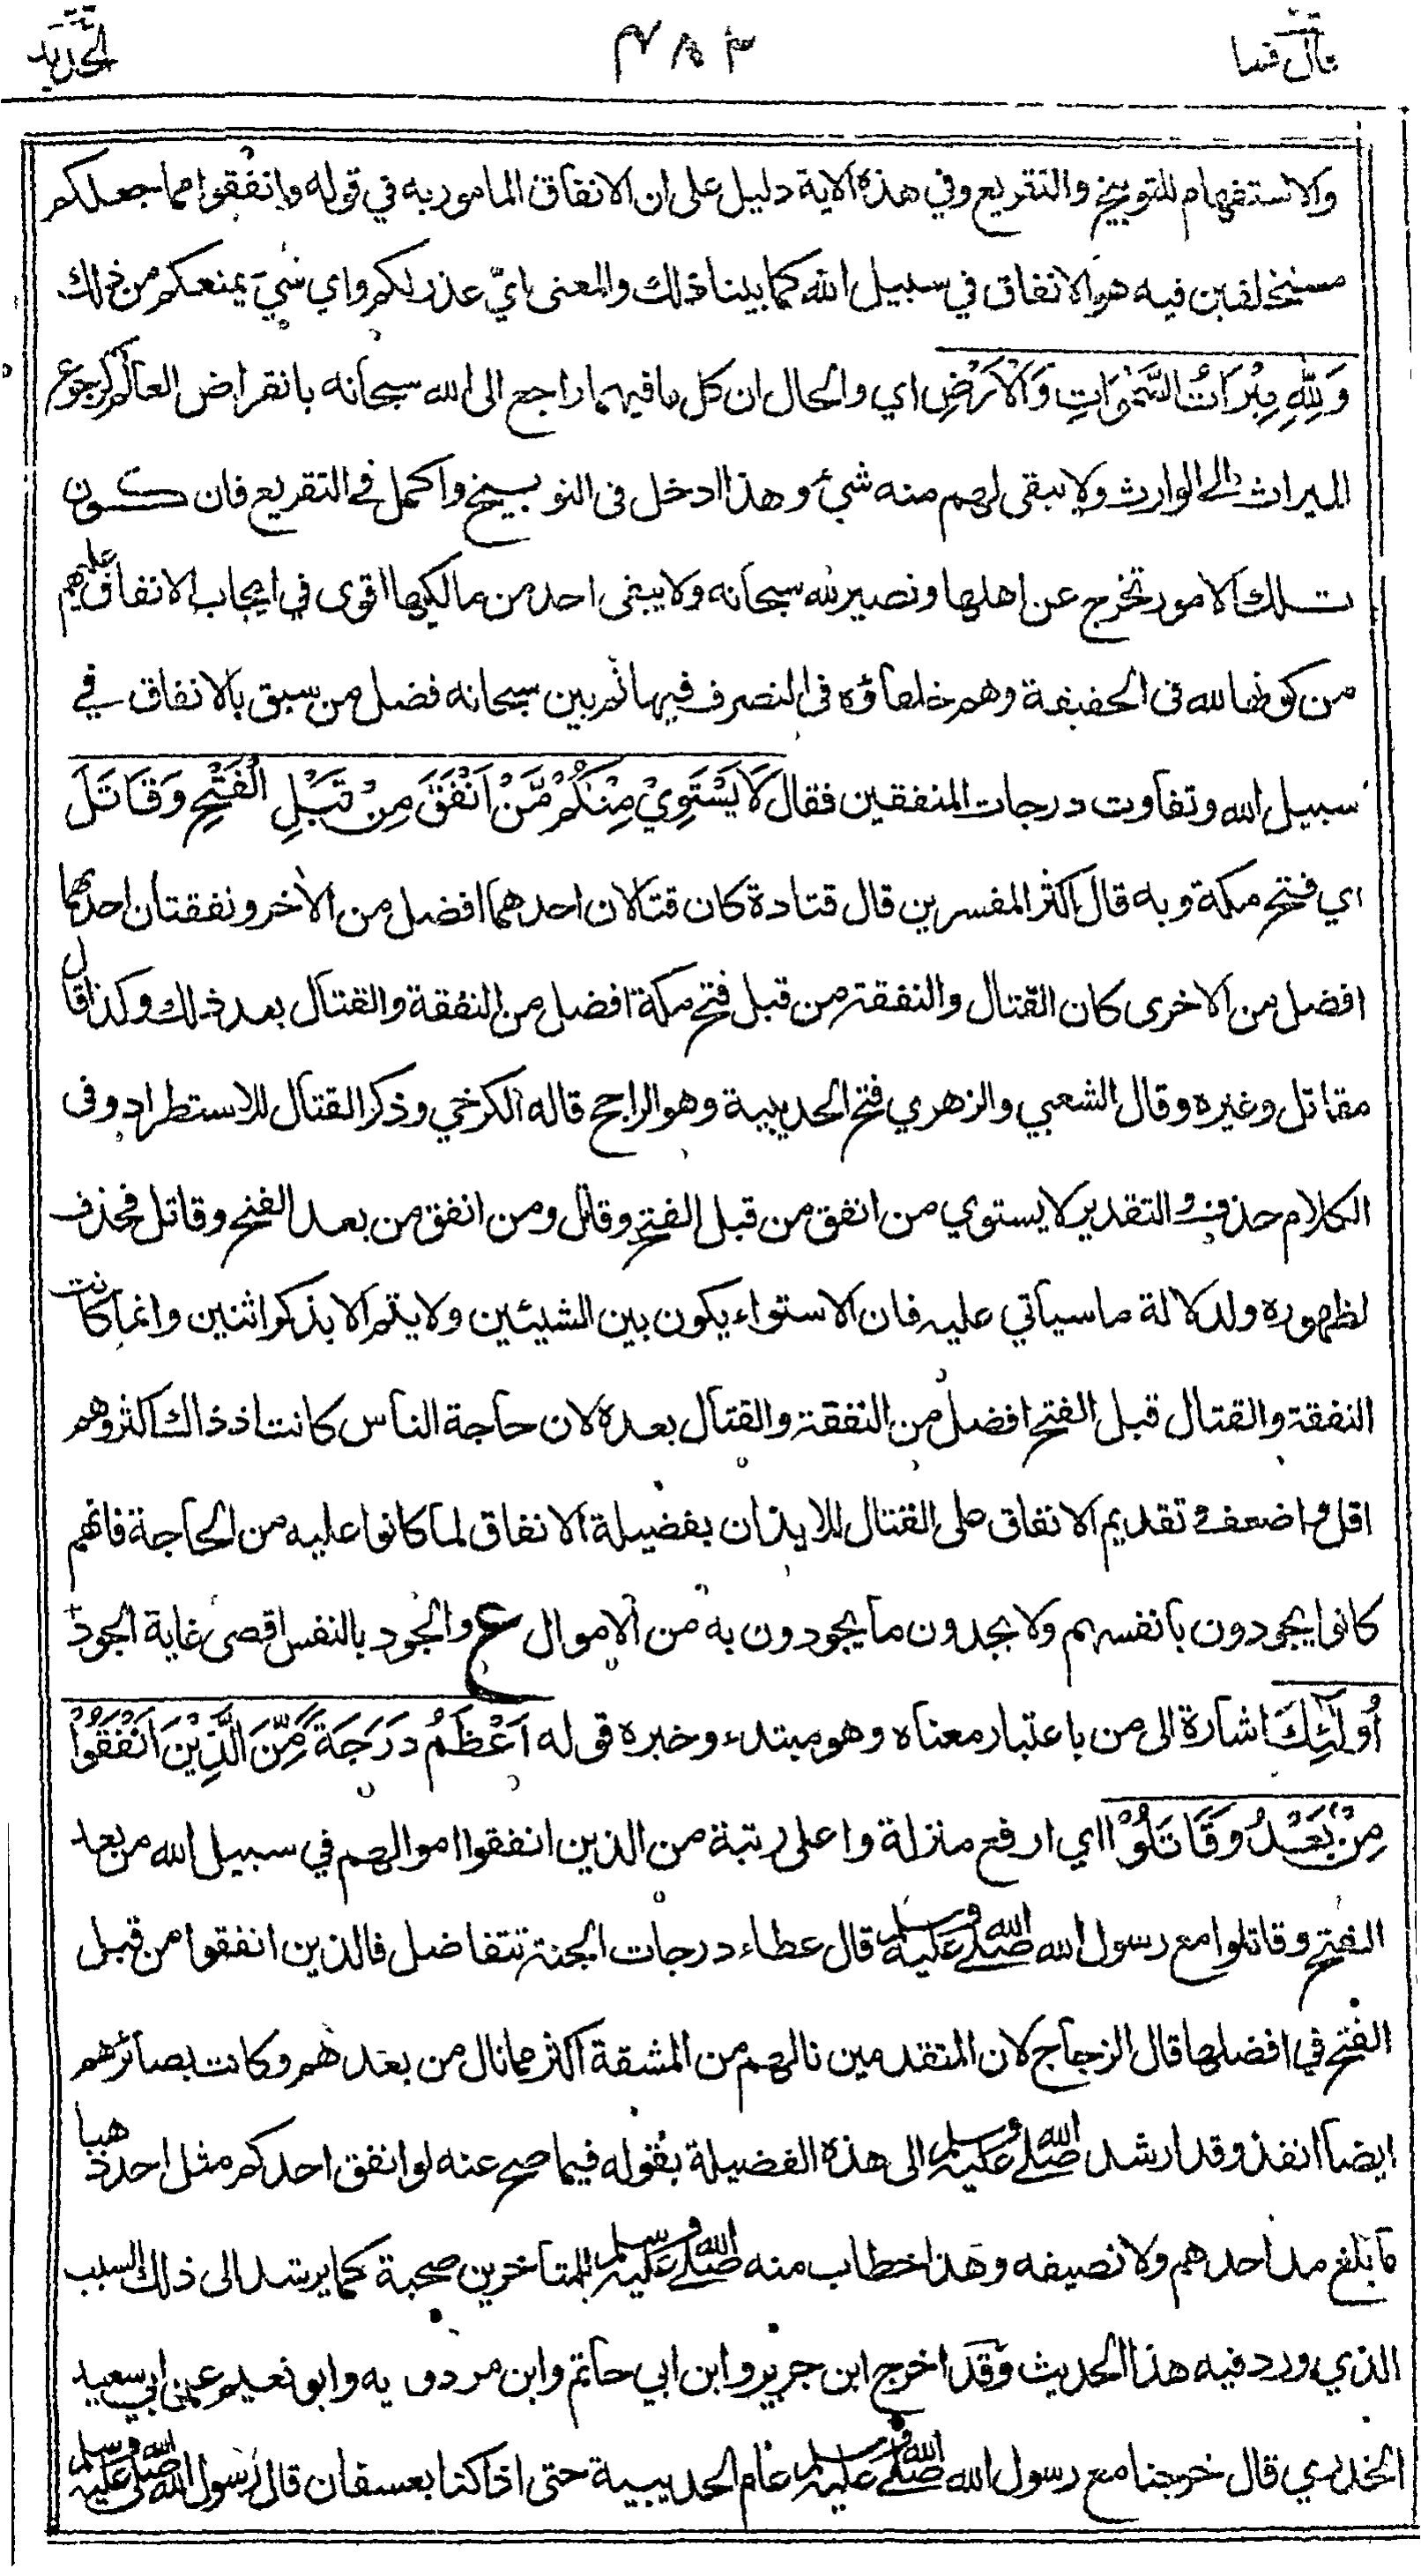 قال فما ٢٨٣ الحديد
والاستفهام للتوبيخ والتقريع وفي هذه الاية دليل على ان الانفاق المامور به في قوله وانفقوا مما جعلكم
مستخلفين فيه هو الانفاق في سبيل الله كما بينا ذلك والمعنى ايّ عذر لكم واي شيء يمنعكم من ذلك
وَلِلّٰهِ مِيْرَاثُ السَّمٰوٰاتِ وَالْاَرْضِ اي والحال ان كل ما فيهما راجع الى الله سبحانه بانقراض العالم كرجوع
الميراث الى الوارث ولا يبقى لهم منه شيء وهذا ادخل فى التوبيخ واكمل في التقريع فان كون
تلك الامور تخرج عن اهلها وتصير لله سبحانه ولا يبقى احد من مالكيها اقوى في ايجاب الانفاق عليهم
من كونها لله فى الحقيقة وهم خلفاؤه فى التصرف فيها ثم بين سبحانه فضل من سبق بالانفاق في
سبيل الله وتفاوت درجات المنفقين فقال لَا يَسْتَوِيْ مِنْكُمْ مَّنْ اَنْفَقَ مِنْ قَبْلِ الْفَتْحِ وَقَاتَلَ
اي فتح مكة وبه قال اكثر المفسرين قال قتادة كان قتالان احدهما افضل من الاخر ونفقتان احدٰهما
افضل من الاخرى كان القتال والنفقة من قبل فتح مكة افضل من النفقة والقتال بعد ذلك وكذا قال
مقاتل وغيره وقال الشعبي والزهري فتح الحديبية وهو الراجح قاله الكرخي وذكر القتال للاستطراد وفى
الكلام حذف والتقدير لا يستوي من انفق من قبل الفتح وقاتل ومن انفق من بعد الفتح وقاتل فحذف
لظهوره ولدلالة ما سيأتي عليه فان الاستواء يكون بين الشيئين ولا يتم الا بذكر اثنين وانما كانت
النفقة والقتال قبل الفتح افضل من النفقة والقتال بعده لان حاجة الناس كانت اذ ذاك اكثر وهم
اقل واضعف وتقديم الانفاق على القتال للايذان بفضيلة الانفاق لما كانوا عليه من الحاجة فانهم
كانوا يجودون بانفسهم ولا يجدون ما يجودون به من الاموال ع والجود بالنفس اقصى غاية الجود +
اُولٰٓئِكَ اشارة الى من باعتبار معناه وهو مبتدء وخبره قوله اَعْظَمُ دَرَجَةً مِّنَ الَّذِيْنَ اَنْفَقُوْا
مِنْۢ بَعْدُ وَقَاتَلُوْا اي ارفع منزلة واعلى رتبة من الذين انفقوا اموالهم في سبيل الله من بعد
الفتح وقاتلوا مع رسول الله صلى الله عليه وسلم قال عطاء درجات الجنة تتفاضل فالذين انفقوا من قبل
الفتح في افضلها قال الزجاج لان المتقدمين نالهم من المشقة اكثر مما نال من بعدهم وكانت بصائرهم
ايضا انفذ وقد ارشد صلى الله عليه وسلم الى هذه الفضيلة بقوله فيما صح عنه لو انفق احدكم مثل احد ذهبا
ما بلغ مد احدهم ولا نصيفه وهذا خطاب منه صلى الله عليه وسلم للمتاخرين صحبة كما يرشد الى ذلك السبب
الذي ورد فيه هذا الحديث وقد اخرج ابن جرير وابن ابي حاتم وابن مردويه وابو نعيم عن ابي سعيد
الخدري قال خرجنا مع رسول الله صلى الله عليه وسلم عام الحديبية حتى اذا كنا بعسفان قال رسول الله صلى الله عليه وسلم